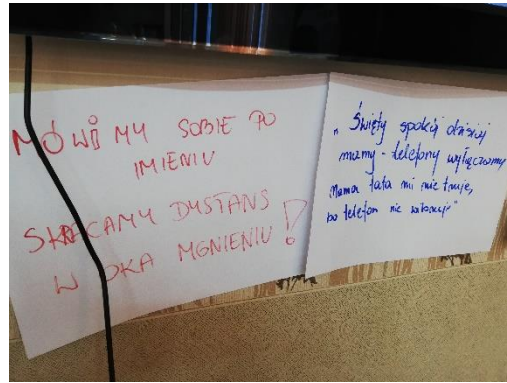 MÓWIMY SOBIE PO
IMIENIU
SKRACAMY DYSTANS
W OKA MGNIENIU!
„Święty spokój dzisiaj
mamy - telefony wyłączamy
Mama tata mi nie truje,
bo telefon nie wibruje"